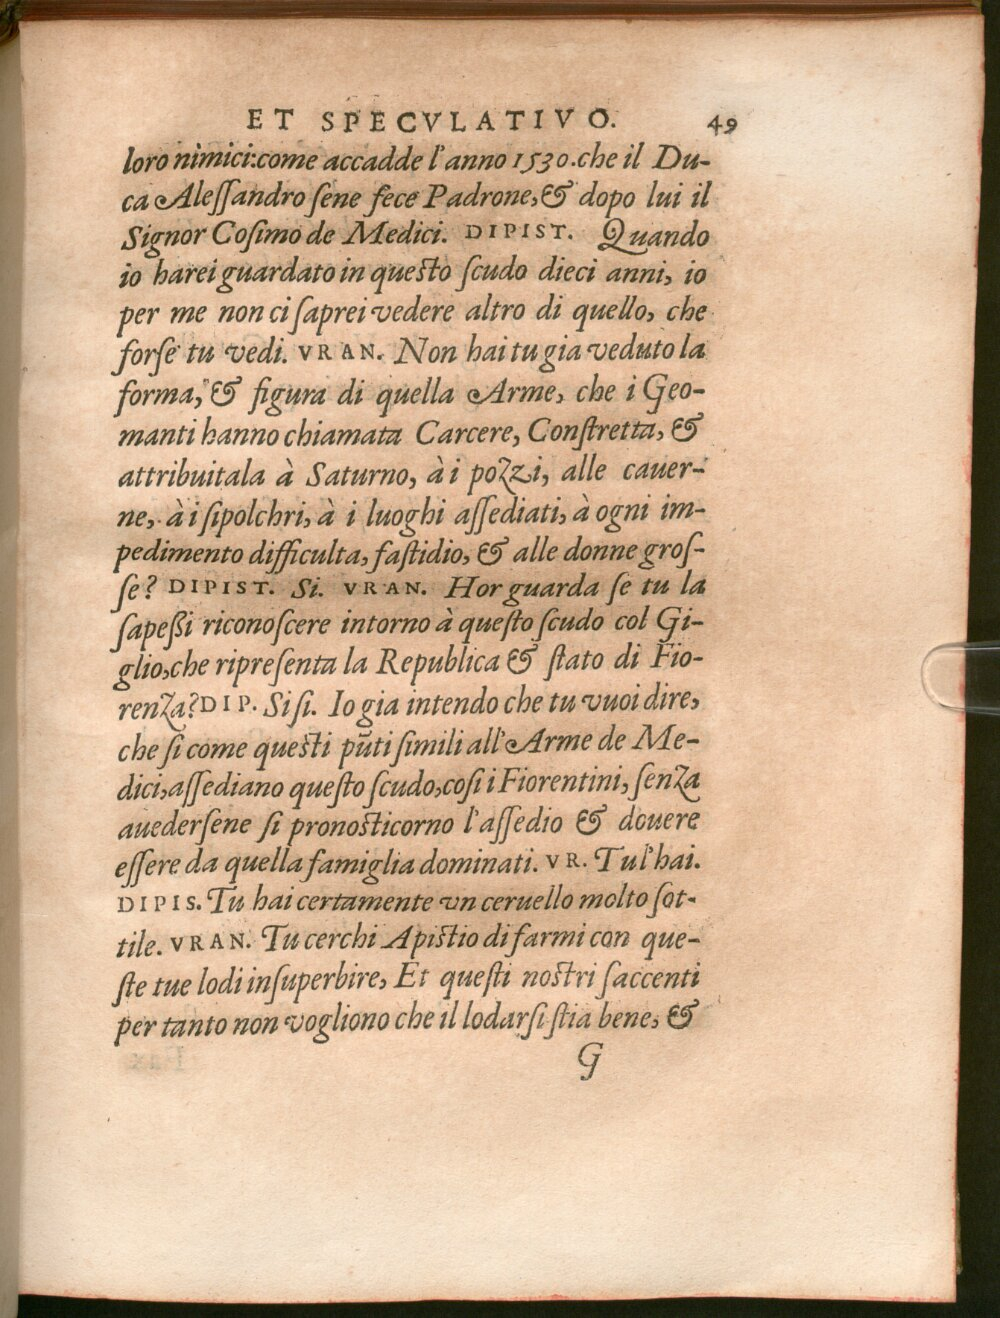 ET SPECVLATIVO. 49
loro nimici:come accadde l'anno 1530.che il Du-
ca Aleſſandro ſene fece Padrone,& dopo lui il
Signor Coſimo de Medici. DIPIST. Quando
io harei guardato in queſto ſcudo dieci anni, io
per me non ci ſaprei vedere altro di quello, che
forſe tu vedi. VRAN. Non hai tu gia veduto la
forma, & figura di quella Arme, che i Geo-
manti hanno chiamata Carcere, Conſtretta, &
attribuitala à Saturno, à i pozzi, alle cauer-
ne, à i ſipolchri, à i luoghi aſſediati, à ogni im-
pedimento difficulta, faſtidio, & alle donne groſ-
ſe? DIPIST. Si. VRAN. Hor guarda ſe tu la
ſapeßi riconoſcere intorno à queſto ſcudo col Gi-
glio,che ripreſenta la Republica & ſtato di Fio-
renza?DIP. Si ſi. Io gia intendo che tu vuoi dire,
che ſi come queſti pūti ſimili all'Arme de Me-
dici,aſſediano queſto ſcudo,coſi i Fiorentini, ſenza
auederſene ſi pronoſticorno l'aſſedio & douere
eſſere da quella famiglia dominati. VR. Tu l'hai.
DIPIS. Tu hai certamente vn ceruello molto ſot-
tile. VRAN. Tu cerchi Apiſtio di farmi con que-
ſte tue lodi inſuperbire, Et queſti noſtri ſaccenti
per tanto non vogliono che il lodarſi ſtia bene, &
G